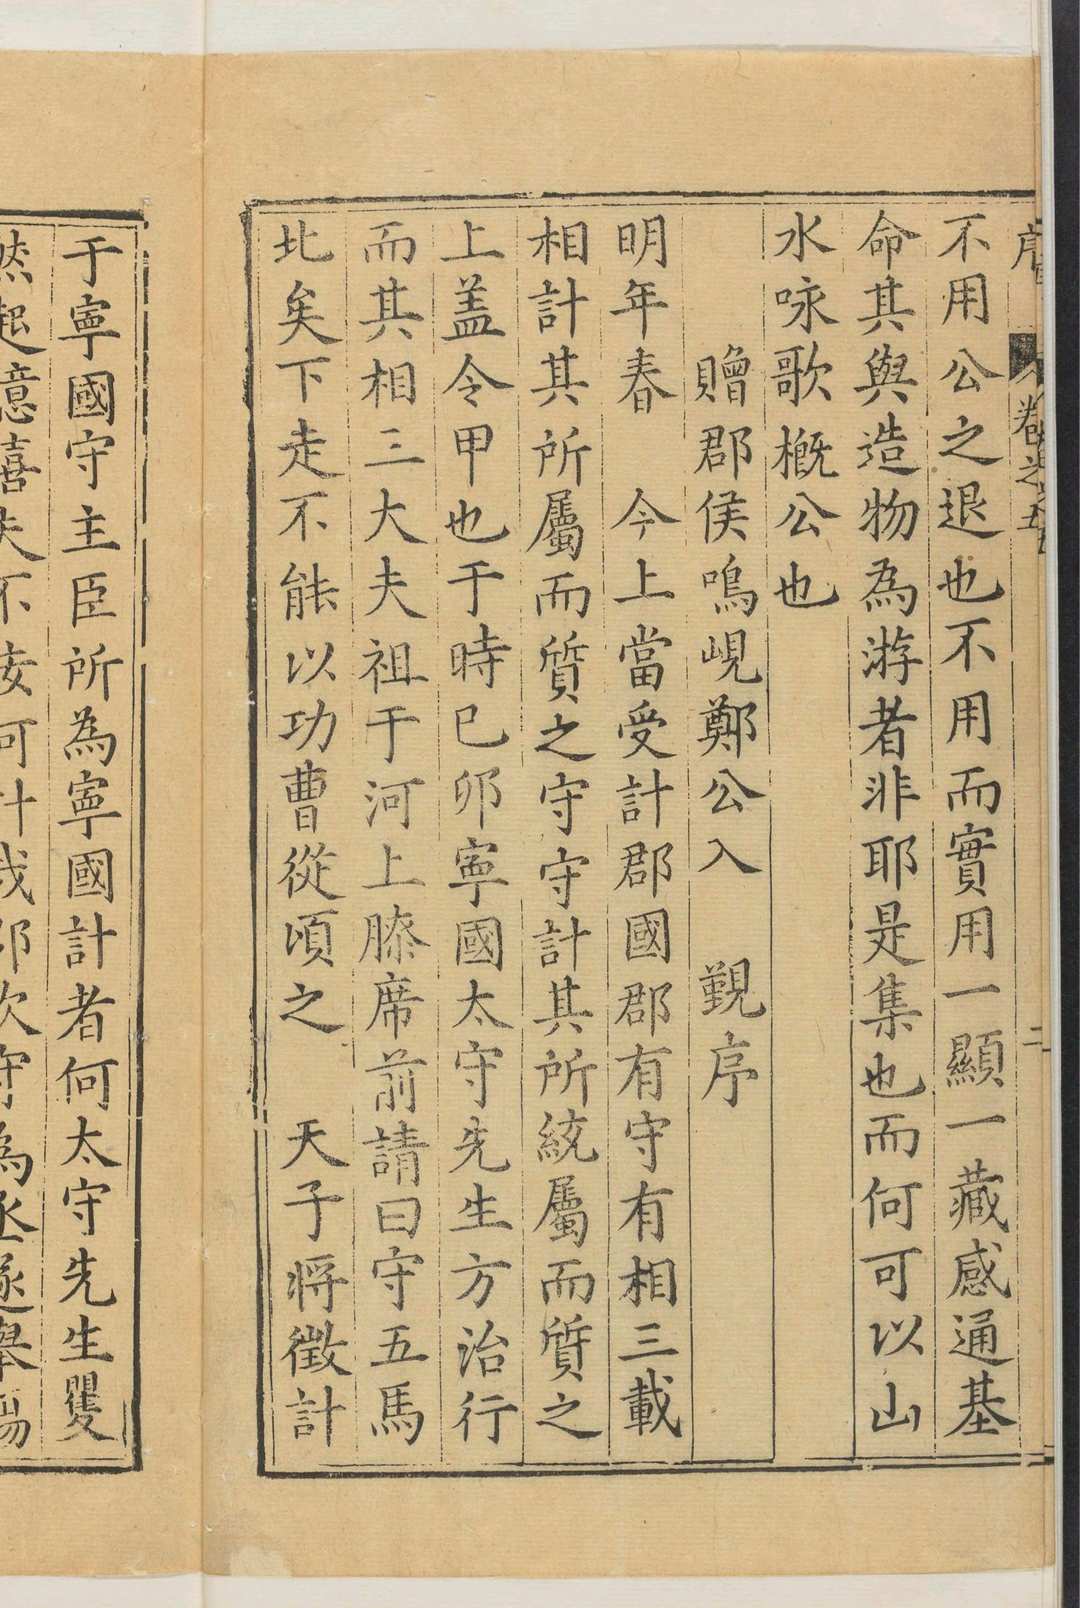 序 卷之五 二
不用公之退也不用而實用一顯一藏感通基
命其與造物為游者非耶是集也而何可以山
水咏歌概公也
贈郡侯鳴峴鄭公入 覲序
明年春 今上當受計郡國郡有守有相三載
相計其所屬而質之守守計其所統屬而質之
上盖令甲也于時已卯寧國太守先生方治行
而其相三大夫祖于河上膝席前請曰守五馬
北矣下走不能以功曹從頃之 天子將徵計
于寧國守主臣所為寧國計者何太守先生矍
然起意喜夫不